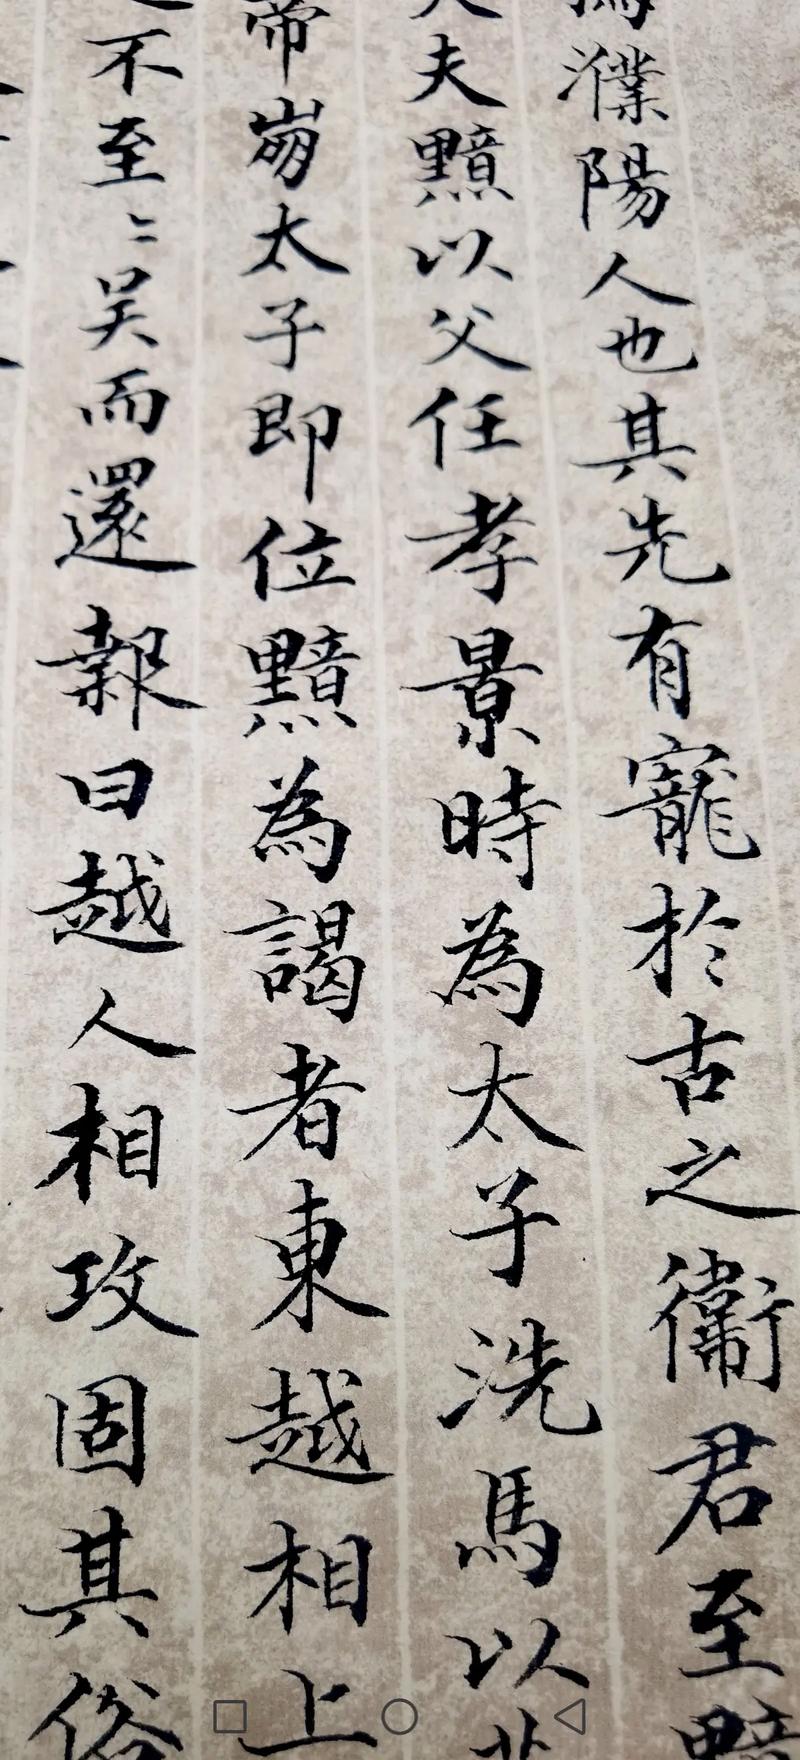 濮陽人也其先有寵於古之衛君至黯
夫黯以父任孝景時為太子洗馬以
帝崩太子即位黯為謁者東越相上
不至〻吴而還報曰越人相攻固其俗